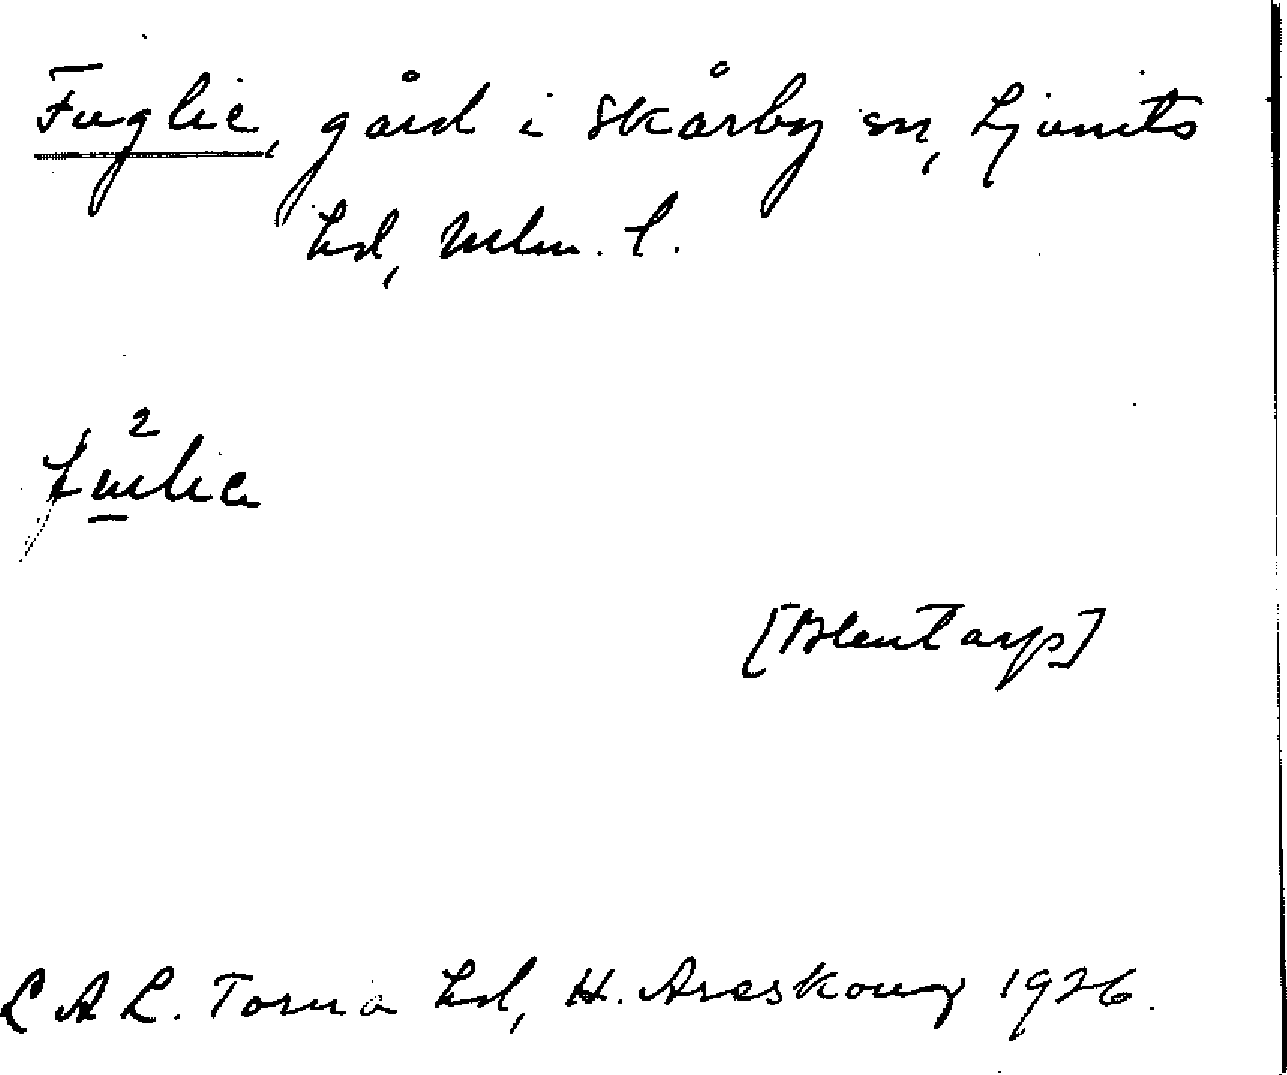 Fuglie, gård i Skårby sn, Ljunits
hd, Mlm. l.
[Blentarp]
L A L. Torna hd, H. Areskoug 1926.